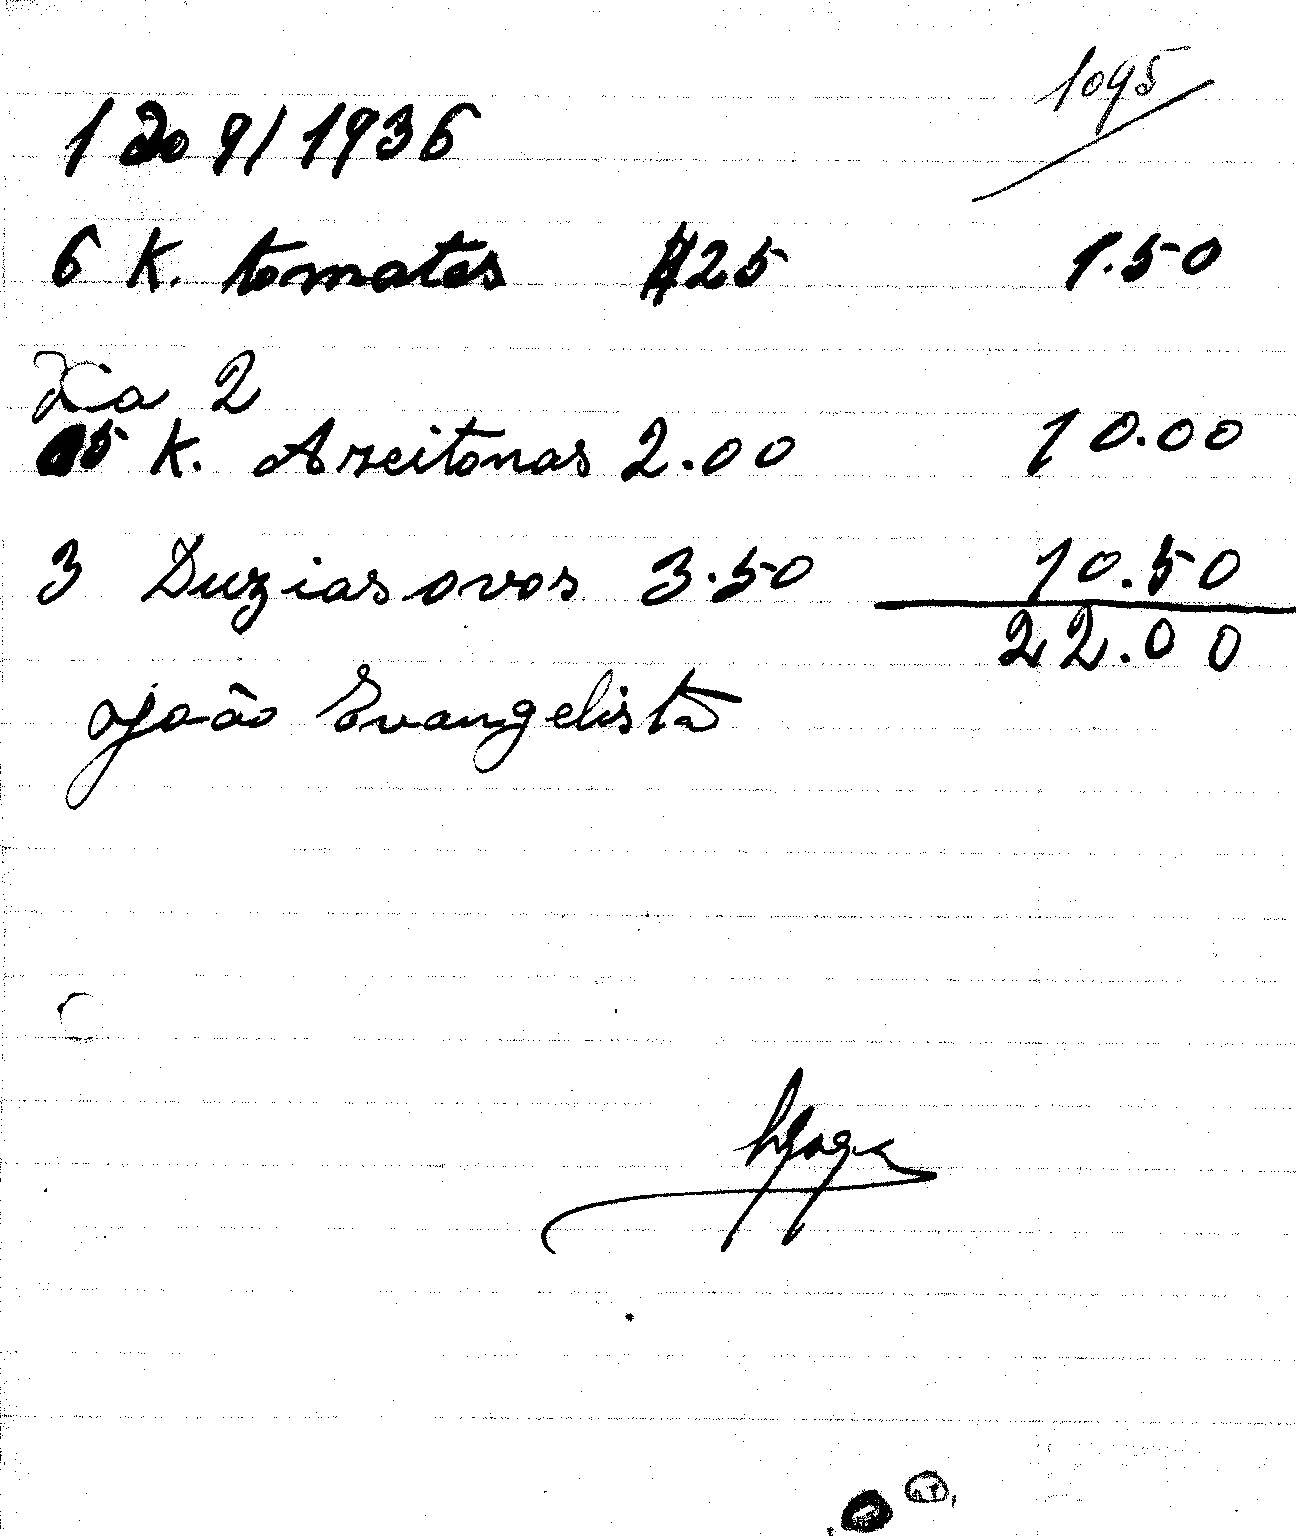 1095
1 do 9/1936
6 K. tomates $25 1.50
2
5 K. Azeitonas 2.00 10.00
3 Duzias ovos 3.50 10.50
22.00
João Evangelista